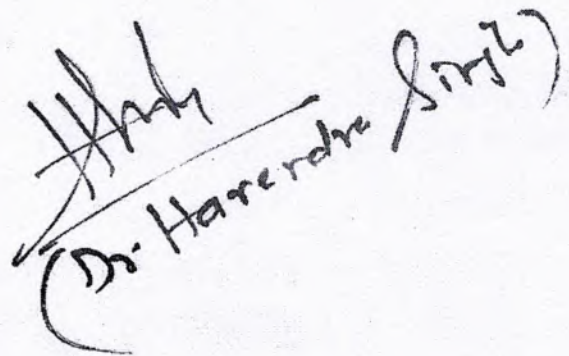 (Dr. Harendra Singh)